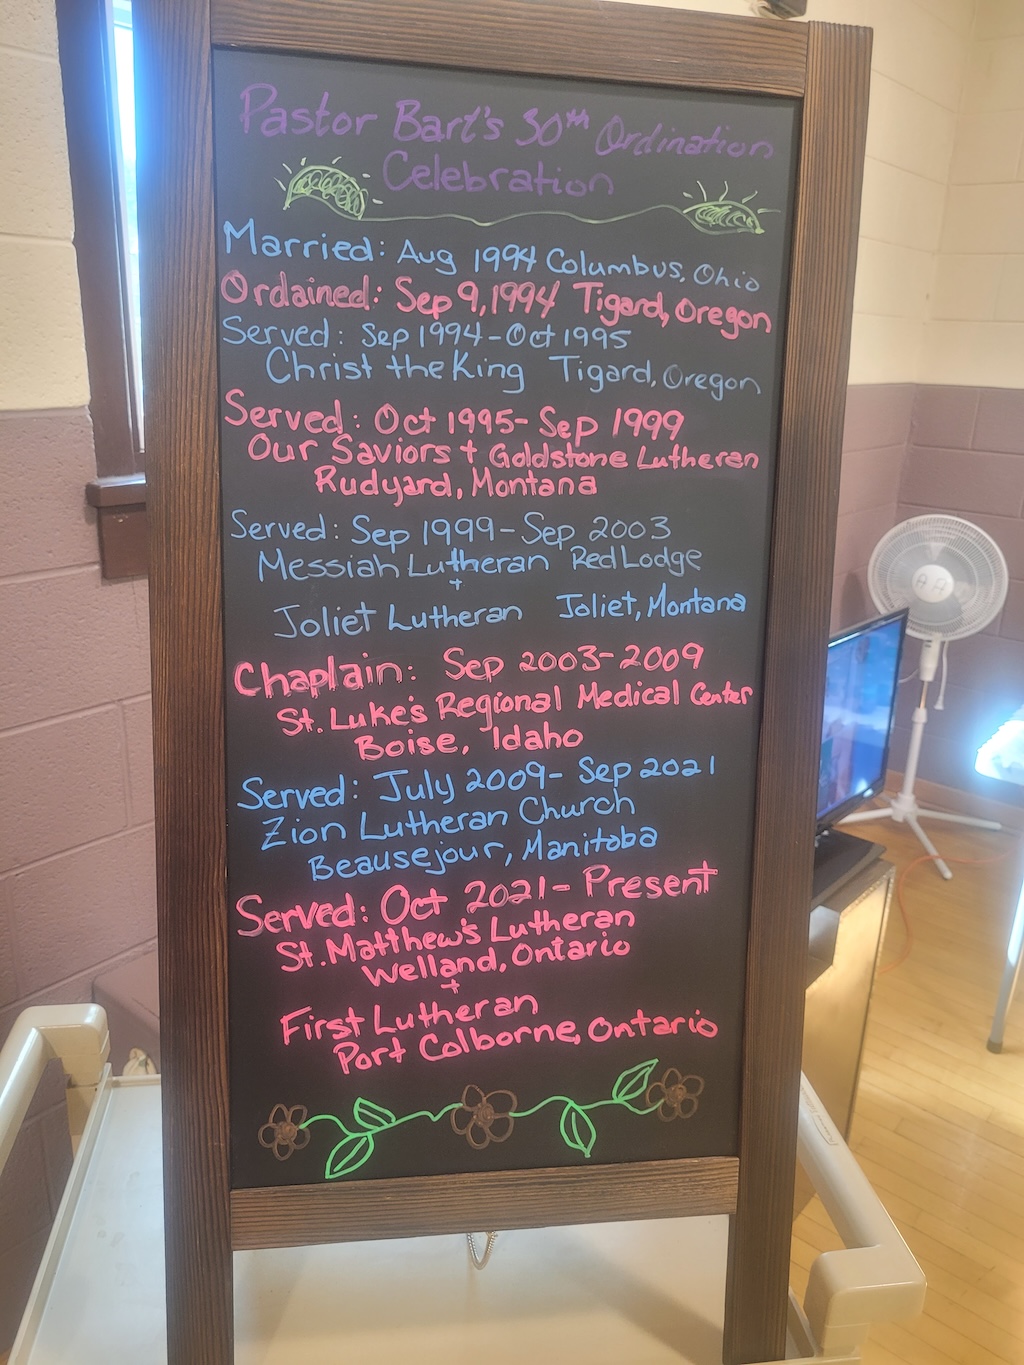 Pastor Bart's 30th Ordination
Celebration
Married: Aug 1994 Columbus, Ohio
Ordained: Sep 9, 1994 Tigard, Oregon
Served: Sep 1994-Oct 1995
Christ the King Tigard, Oregon
Served: Oct 1995- Sep 1999
Our Saviors + Goldstone Lutheran
Rudyard, Montana
Served: Sep 1999- Sep 2003
Messiah Lutheran Red Lodge
+
Joliet Lutheran Joliet, Montana
Chaplain: Sep 2003-2009
St. Luke's Regional Medical Center
Boise, Idaho
Served: July 2009- Sep 2021
Zion Lutheran Church
Beausejour, Manitoba
Served: Oct 2021- Present
St. Matthew's Lutheran
Welland, Ontario
+
First Lutheran
Port Colborne, Ontario